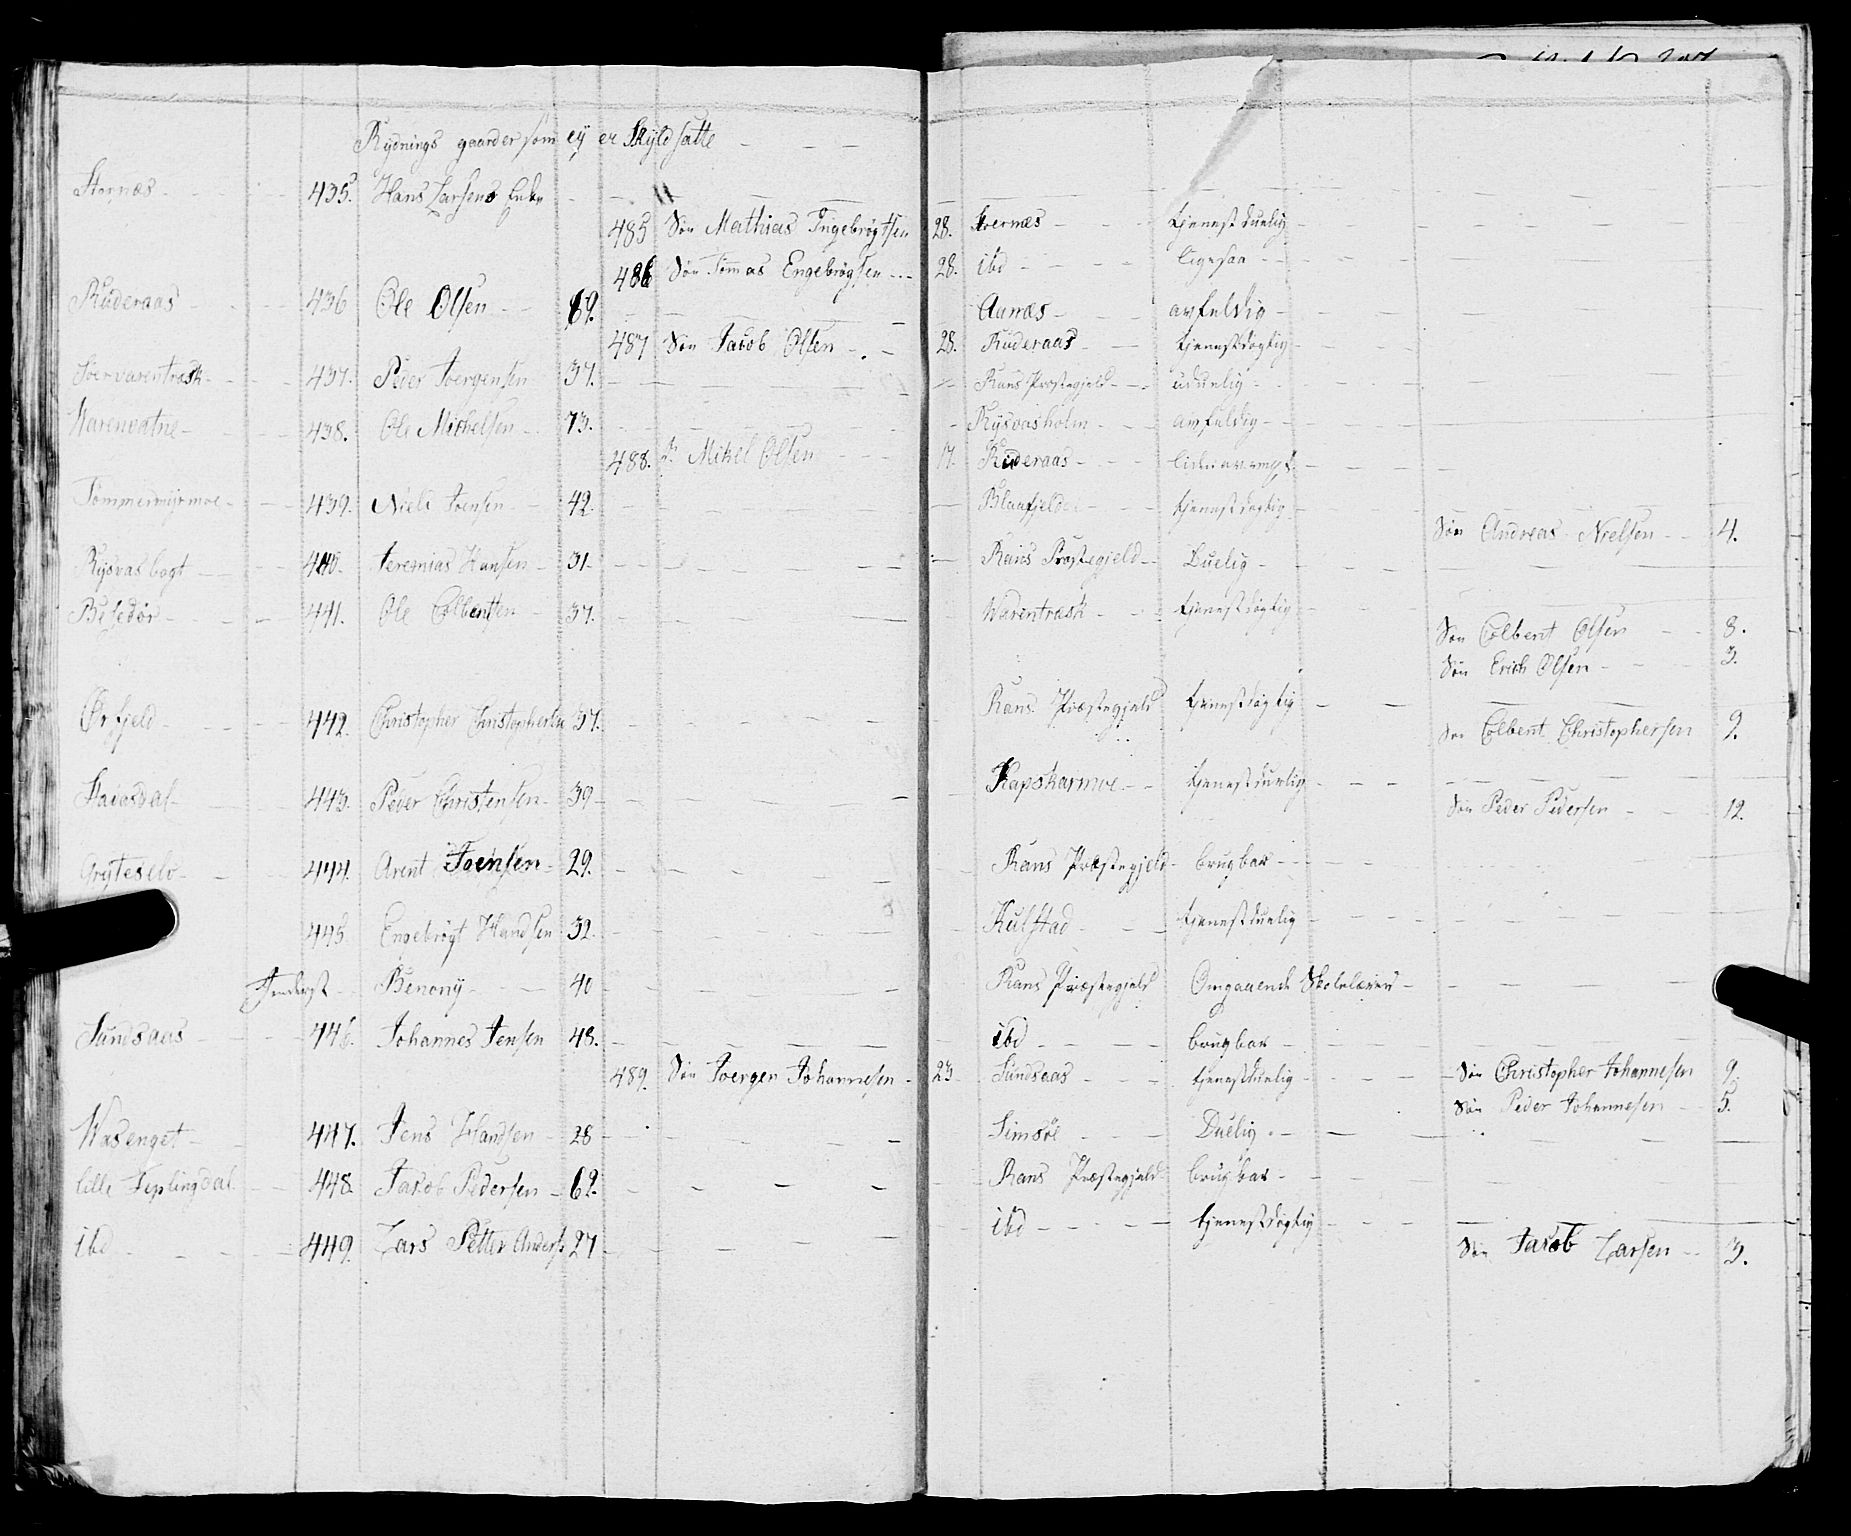 Rydnings gaarder som ey er Skyldsatte
Stornæs 435. Hans Larsens Enke
485 Søn Mathias Ingebrøgtsen 28. Stornæs tjenestduelig
486 Søn Tømas Engebrøgsen 28. ibd ligesaa
Ruderaas 436 Ole Olsen 69. Aunæs avfeldig
487 Søn Jacob Olsen 28. Ruderaas tjenestdøgtig
437. Peder Joergensen 37. Rans Præstegjeld uduelig
Warenvatne 438. Ole Michelsen 73. Rysvasholm avfeldig
488. Mikel Olsen 17. Ruderaas
Tømmermyrmoe 439. Niels Joensen 42. Blaafjeldet tjenestdøgtig
Søn Andreas Nielsen 4.
Rysvasbogt 440. Jeremias Hansen 31. Rans Præstegjeld Duelig
Besedør 441. Ole Colbentsen 37. Warentrask tjenestdøgtig
Søn Colbent Olsen 8.
Søn Erich Olsen 3.
Ørfjeld 442. Christopher Christophersen 37. Rans Præstegjeld tjenestdøgtig
Søn Colbent Christophersen 9.
443. Peder Christensen 39 Kapskarmoe tjenestduelig
Søn Peder Pedersen 12.
Gryteselv 444. Arent Joensen 29. Rans Præstegjeld brugbar
445 Engebrøgt Handsen 32. Kulstad tjenestduelig
Inderst Benony 40 Rans Præstegjeld Omgaaende Skolelærer
Sundsaas 446. Johannes Jensen 48. ibd brugbar
489. Søn Joergen Johannesen 23 Sundsaas tjenestduelig Søn Christopher Johannesen 9.
Søn Peder Johannesen 5.
Wasenget 447. Jens Handsen 28 Simsøe Duelig
lille Fiplingdal 448. Jakob Pedersen 62. Rans Præstegjeld brugbar
ibd 449. Lars Petter Anders 27 ibd tjenestdøgtig
Søn Jacob Larsen 3.